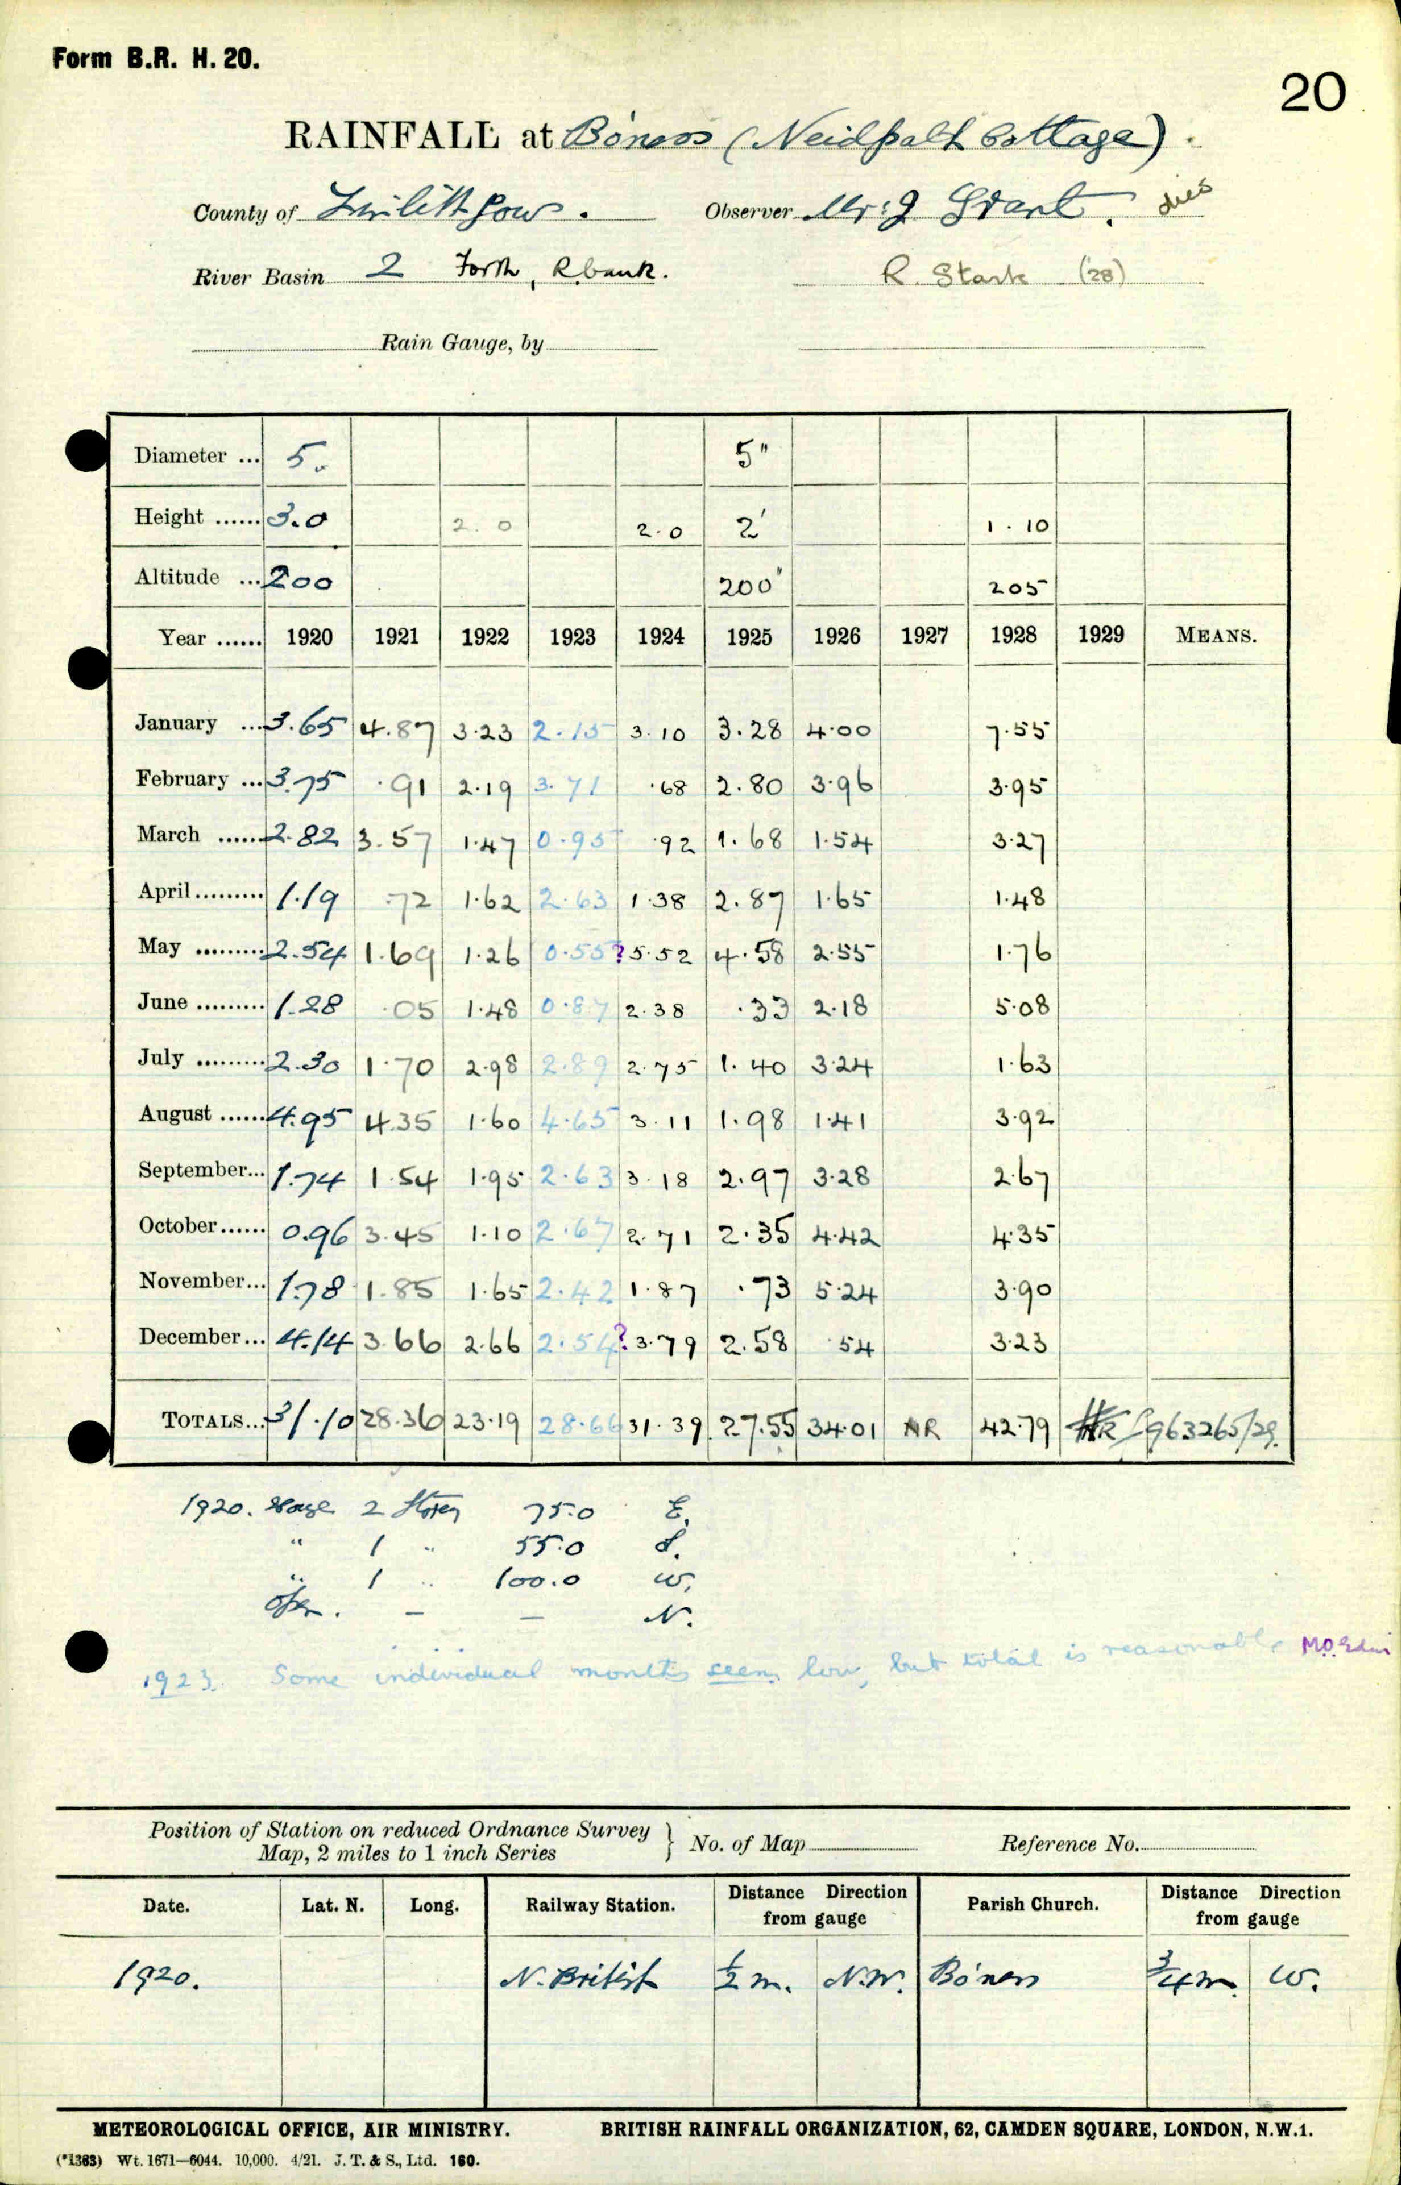 Form B.R. H. 20.
20
RAINFALL at Bo'ness (Neidpath Cottage).
County of Linlithgow. Observer Mr. J Grant. dies
River Basin 2 Forth, R bank. R. Stark ('28)
Rain Gauge, by
Diameter ... 5. 5"
Height ...... 3.0 2.0 2.0 2' 1.10
Altitude ... 200 200' 205
Year ...... 1920 1921 1922 1923 1924 1925 1926 1927 1928 1929 MEANS.
January ... 3.65 4.87 3.23 2.15 3.10 3.28 4.00 7.55
February ... 3.75 .91 2.19 3.71 .68 2.80 3.96 3.95
March ...... 2.82 3.57 1.47 0.95 .92 1.68 1.54 3.27
April ......... 1.19 .72 1.62 2.63 1.38 2.87 1.65 1.48
May ......... 2.54 1.69 1.26 0.55 ? 5.52 4.58 2.55 1.76
June ......... 1.28 .05 1.48 0.87 2.38 .33 2.18 5.08
July ......... 2.30 1.70 2.98 2.89 2.75 1.40 3.24 1.63
August ...... 4.95 4.35 1.60 4.65 3.11 1.98 1.41 3.92
September... 1.74 1.54 1.95 2.63 3.18 2.97 3.28 2.67
October...... 0.96 3.45 1.10 2.67 2.71 2.35 4.42 4.35
November... 1.78 1.85 1.65 2.42 1.87 .73 5.24 3.90
December... 4.14 3.66 2.66 2.54 ? 3.79 2.58 .54 3.23
TOTALS... 31.10 28.36 23.19 28.66 31.39 27.55 34.01 NR 42.79 NR 963265/29.
1920. House 2 Storey 75.0 E.
" 1 " 55.0 S.
" 1 " 100.0 W.
Open. – – N.
1923. Some individual months seem low, but total is reasonable M.O. Edin
Position of Station on reduced Ordnance Survey
Map, 2 miles to 1 inch Series } No. of Map Reference No.
Date. Lat. N. Long. Railway Station. Distance Direction from gauge Parish Church. Distance Direction from gauge
1920. N. British ½ m. N.W. Bo'ness ¾ m. W.
METEOROLOGICAL OFFICE, AIR MINISTRY. BRITISH RAINFALL ORGANIZATION, 62, CAMDEN SQUARE, LONDON, N.W.1.
(*1363) Wt. 1671—6044. 10,000. 4/21. J. T. & S., Ltd. 160.